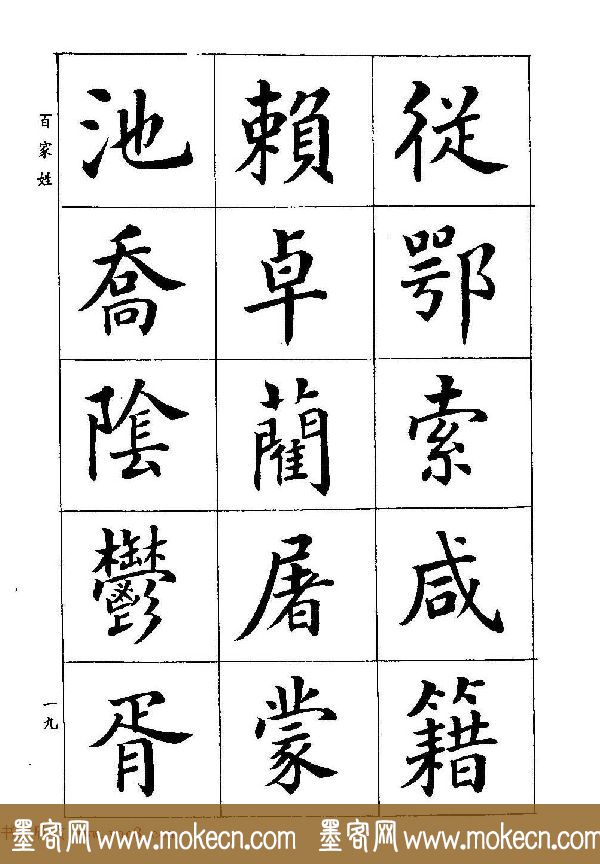 従鄂索咸籍
賴卓藺屠蒙
池喬隂鬱胥
百家姓
一九
墨客网 www.mokecn.com 墨客网 www.mokecn.com